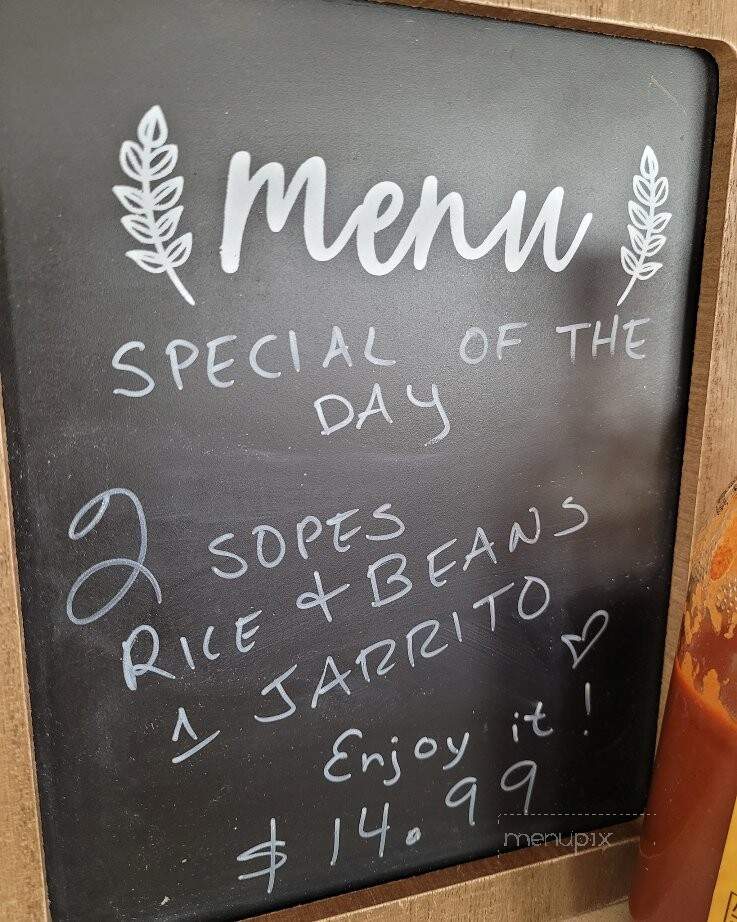 menu
SPECIAL OF THE
DAY
2 SOPES
RICE & BEANS
1 JARRITO
Enjoy it!
$14.99
menupix